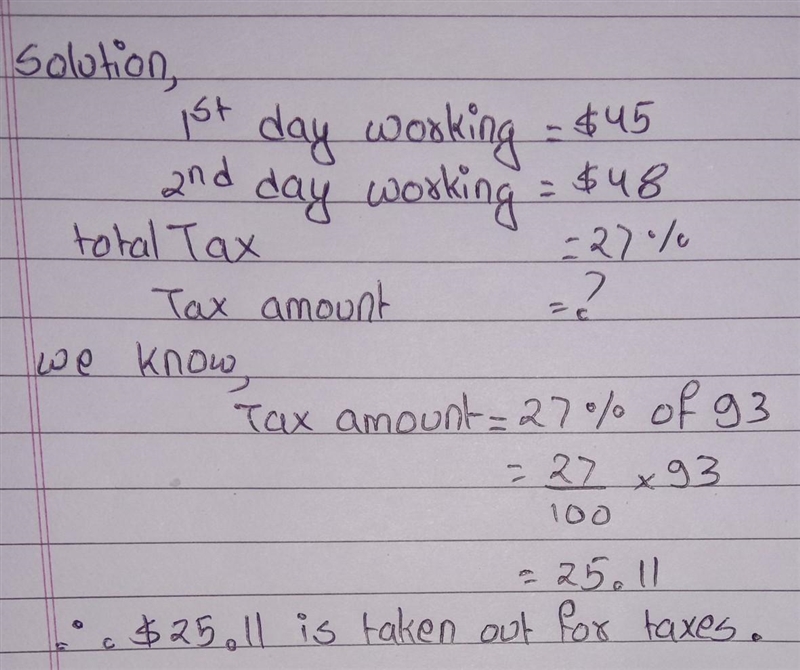 Solution,
1st day working = $45
2nd day working = $48
total Tax = 27%
Tax amount = ?
we know,
Tax amount = 27% of 93
= 27/100 × 93
= 25.11
∴ $25.11 is taken out for taxes.